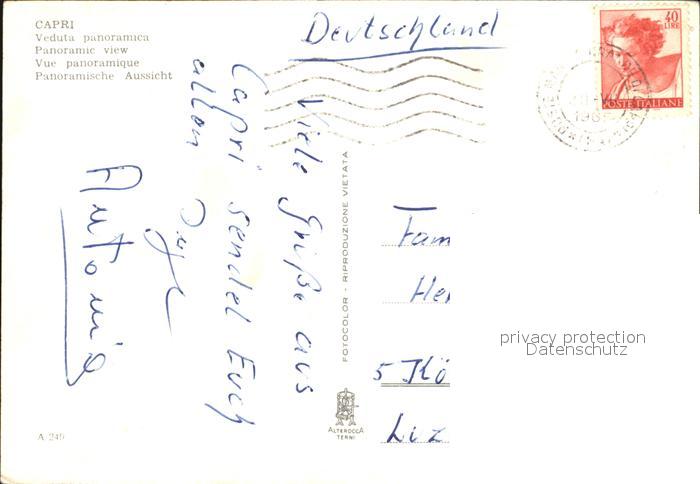 CAPRI
Veduta panoramica
Panoramic view
Vue panoramique
Panoramische Aussicht
Deutschland
40
LIRE
POSTE ITALIANE
Viele Grüße aus
Capri sendet Euch
allen
Antonia
FOTOCOLOR - RIPRODUZIONE VIETATA
Fam
Her
5 Kö
Luz
privacy protection
Datenschutz
ALTEROCCA
TERNI
A 249